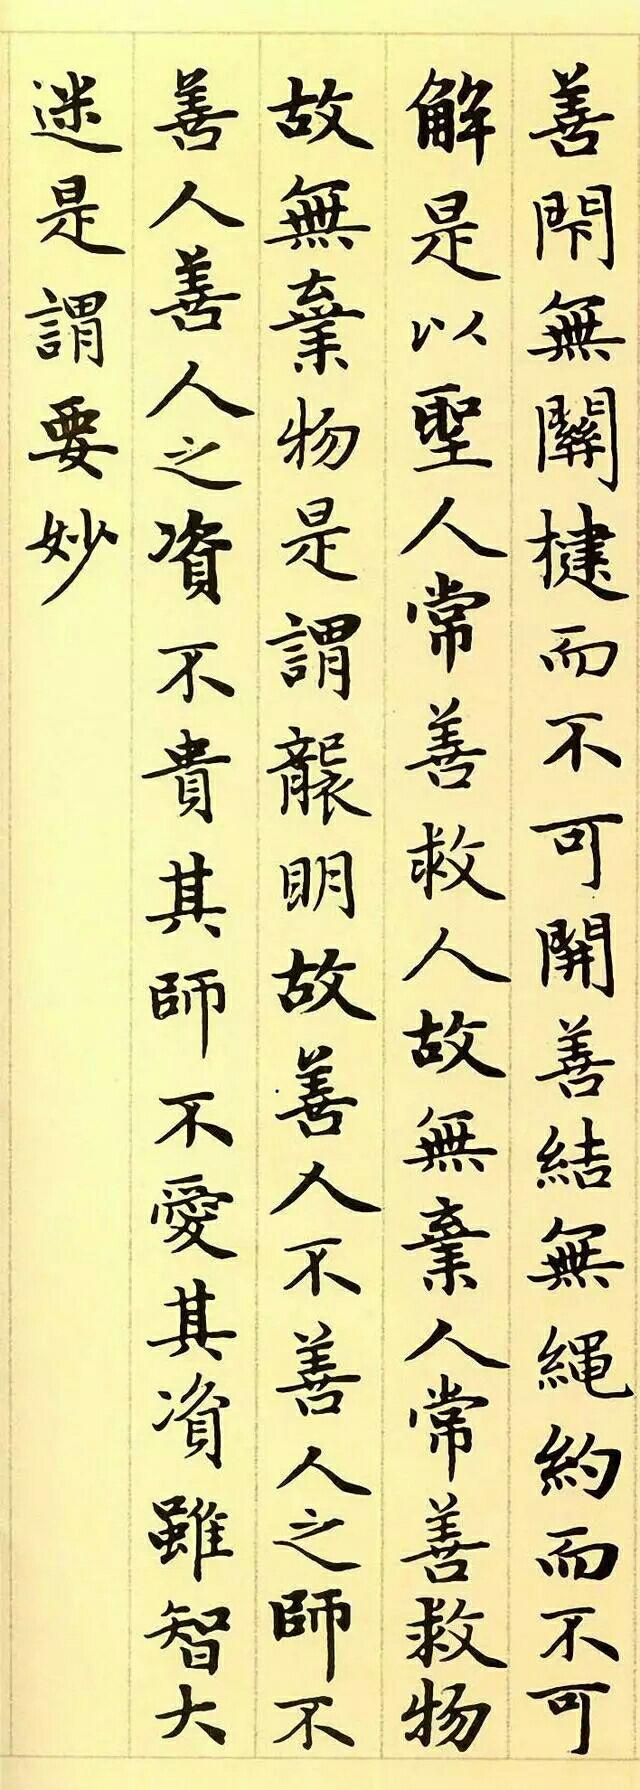 善閇無關揵而不可開善結無繩約而不可
解是以聖人常善救人故無棄人常善救物
故無棄物是謂襲明故善人不善人之師不
善人善人之資不貴其師不愛其資雖智大
迷是謂要妙